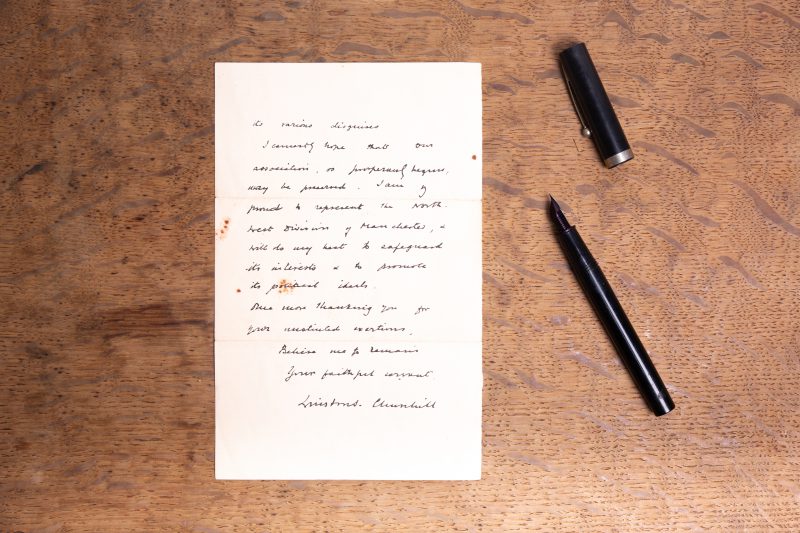 its various disguises
I earnestly hope that our
association, so prosperously begun,
may be preserved. I am
proud to represent the North-
West Division of Manchester, &
will do my best to safeguard
its interests & to promote
its political ideals.
Once more thanking you for
your unstinted exertions,
Believe me to remain
Your faithful servant
Winston S. Churchill